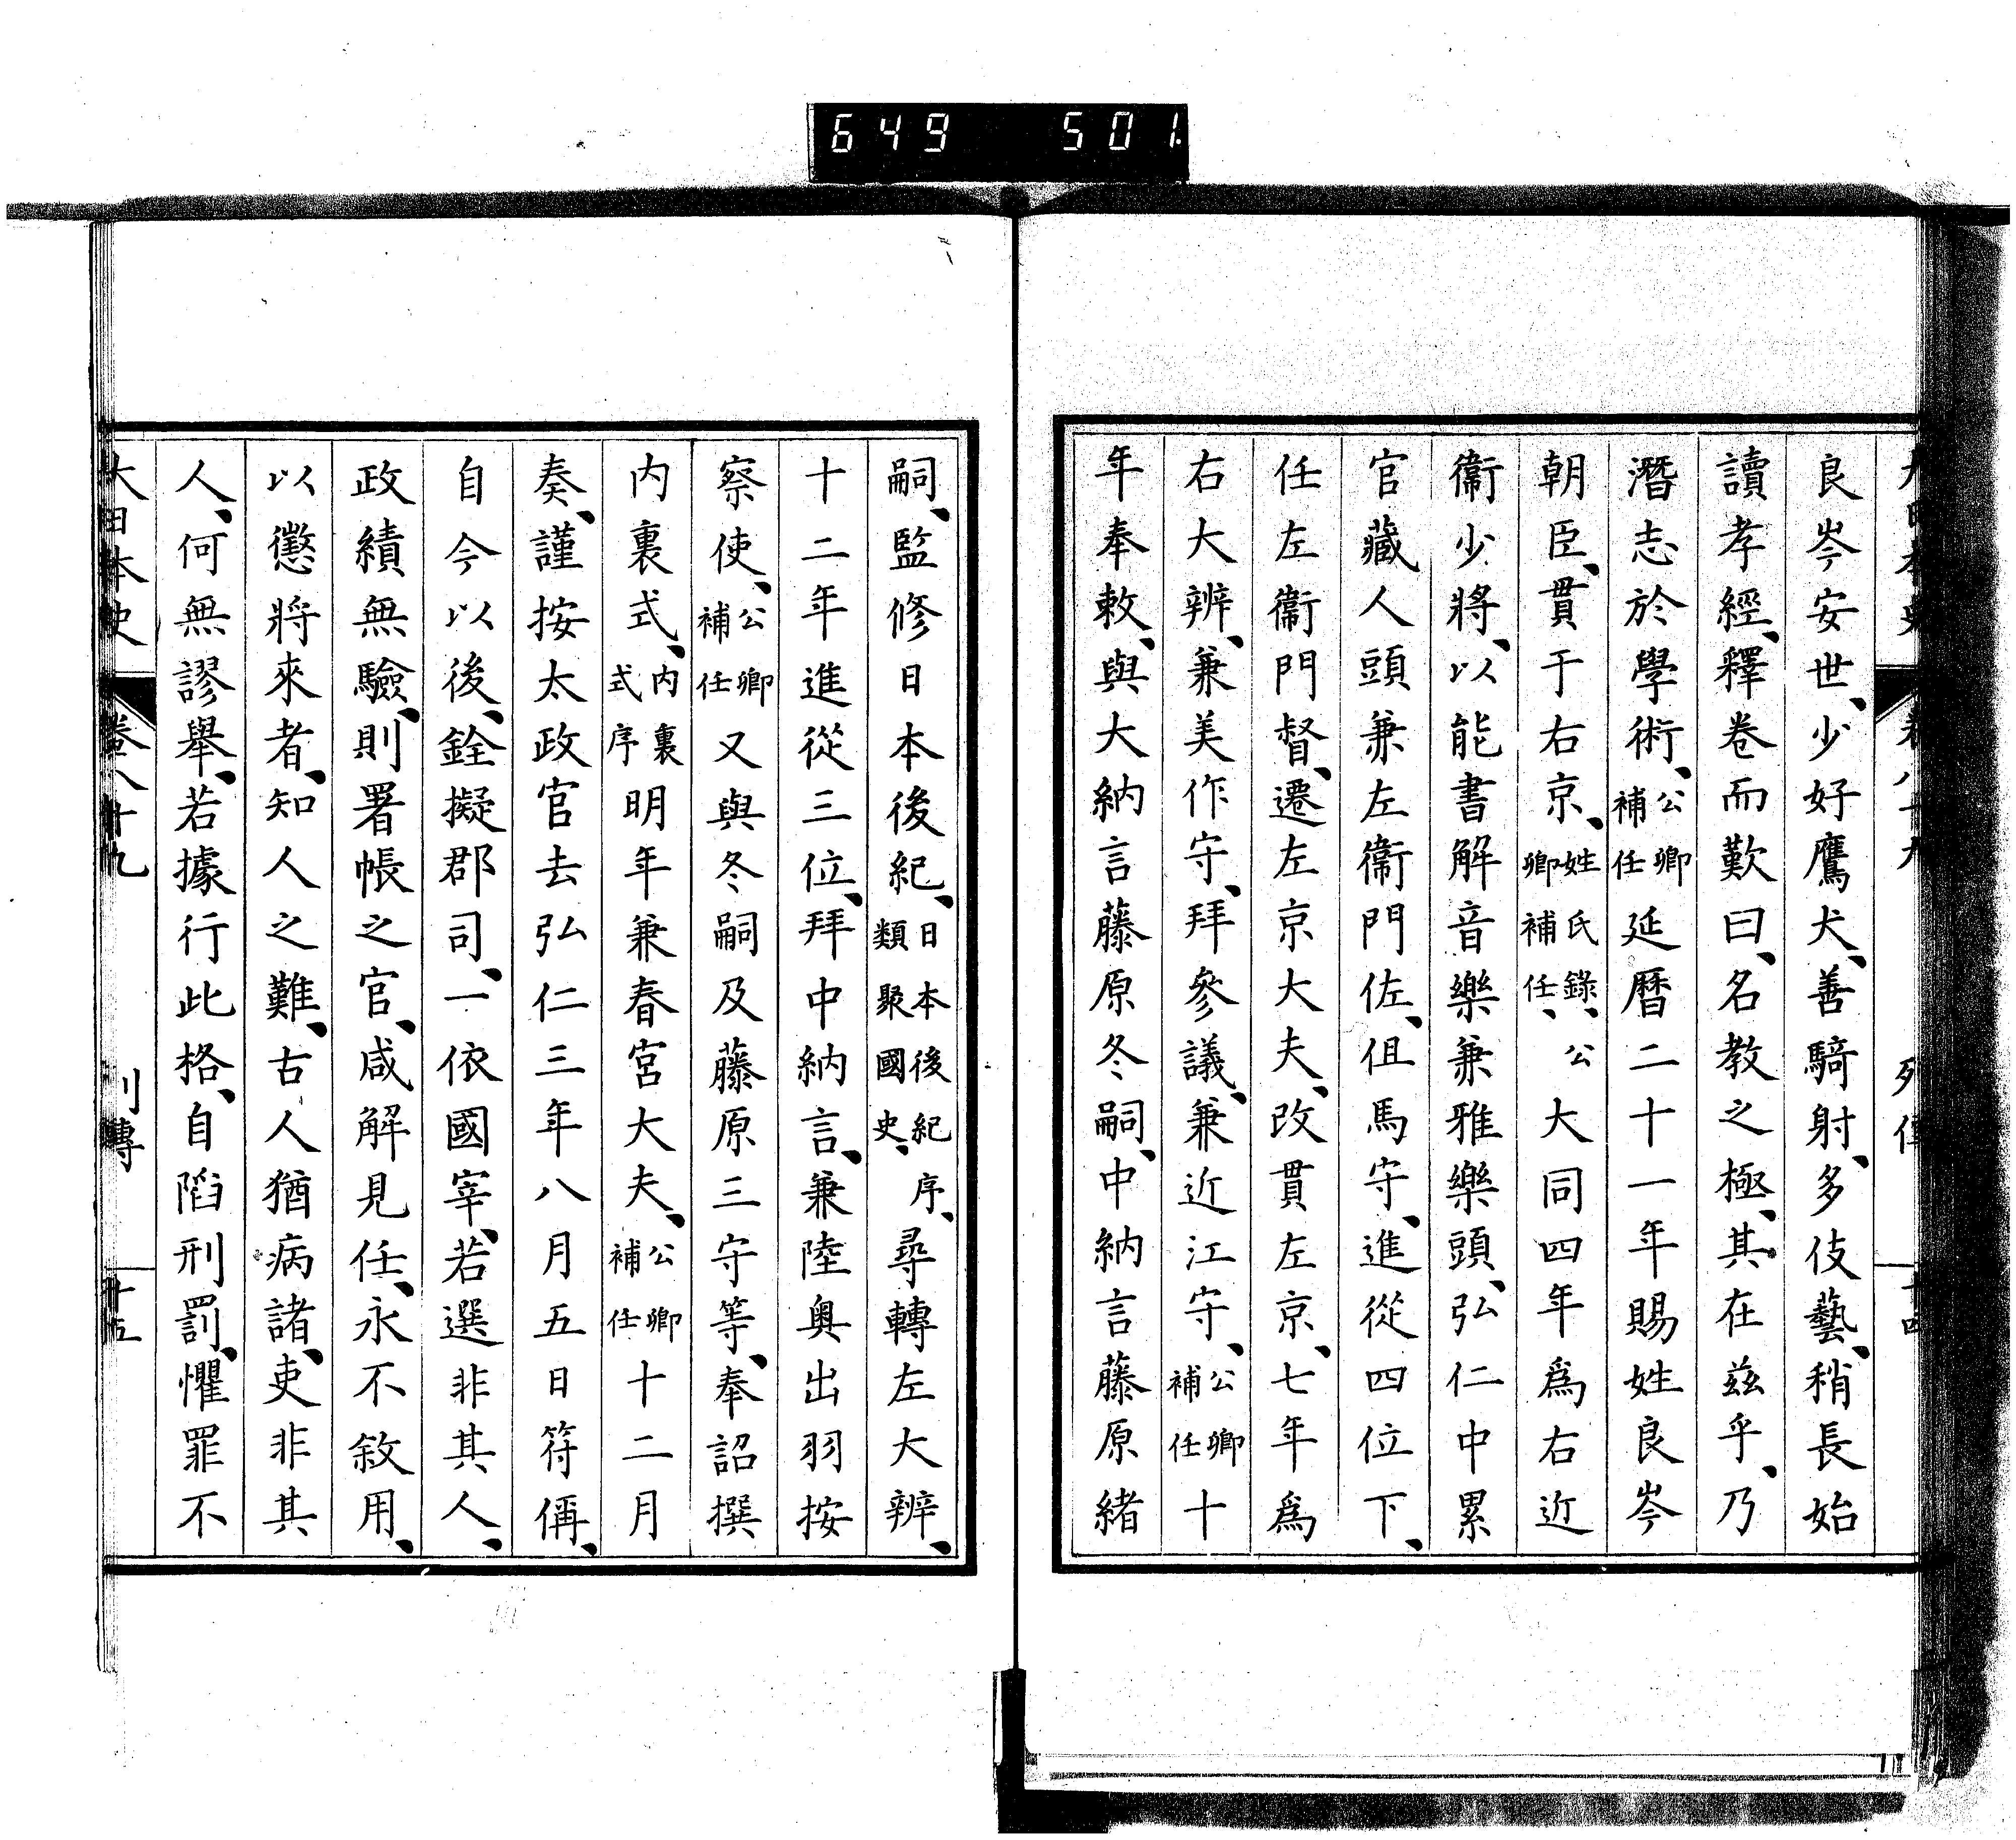 649 501
大日本史 卷八十九 列傳 十四
良岑安世、少好鷹犬、善騎射、多伎藝、稍長始
讀孝經、釋卷而歎曰、名教之極、其在茲乎、乃
潛志於學術、公卿補任延曆二十一年賜姓良岑
朝臣、貫于右京、姓氏錄、公卿補任、大同四年爲右近
衞少將、以能書解音樂兼雅樂頭、弘仁中累
官藏人頭兼左衞門佐、但馬守、進從四位下、
任左衞門督、遷左京大夫、改貫左京、七年爲
右大辨、兼美作守、拜參議、兼近江守、公卿補任十
年奉敕、與大納言藤原冬嗣、中納言藤原緒
嗣、監修日本後紀、日本後紀序、類聚國史、尋轉左大辨、
十二年進從三位、拜中納言、兼陸奥出羽按
察使、公卿補任又與冬嗣及藤原三守等、奉詔撰
内裏式、内裏式序明年兼春宮大夫、公卿補任十二月
奏、謹按太政官去弘仁三年八月五日符偁、
自今以後、銓擬郡司、一依國宰、若選非其人、
政績無驗、則署帳之官、咸解見任、永不敘用、
以懲將來者、知人之難、古人猶病諸、吏非其
人、何無謬舉、若據行此格、自陷刑罰、懼罪不
大日本史 卷八十九 列傳 十五